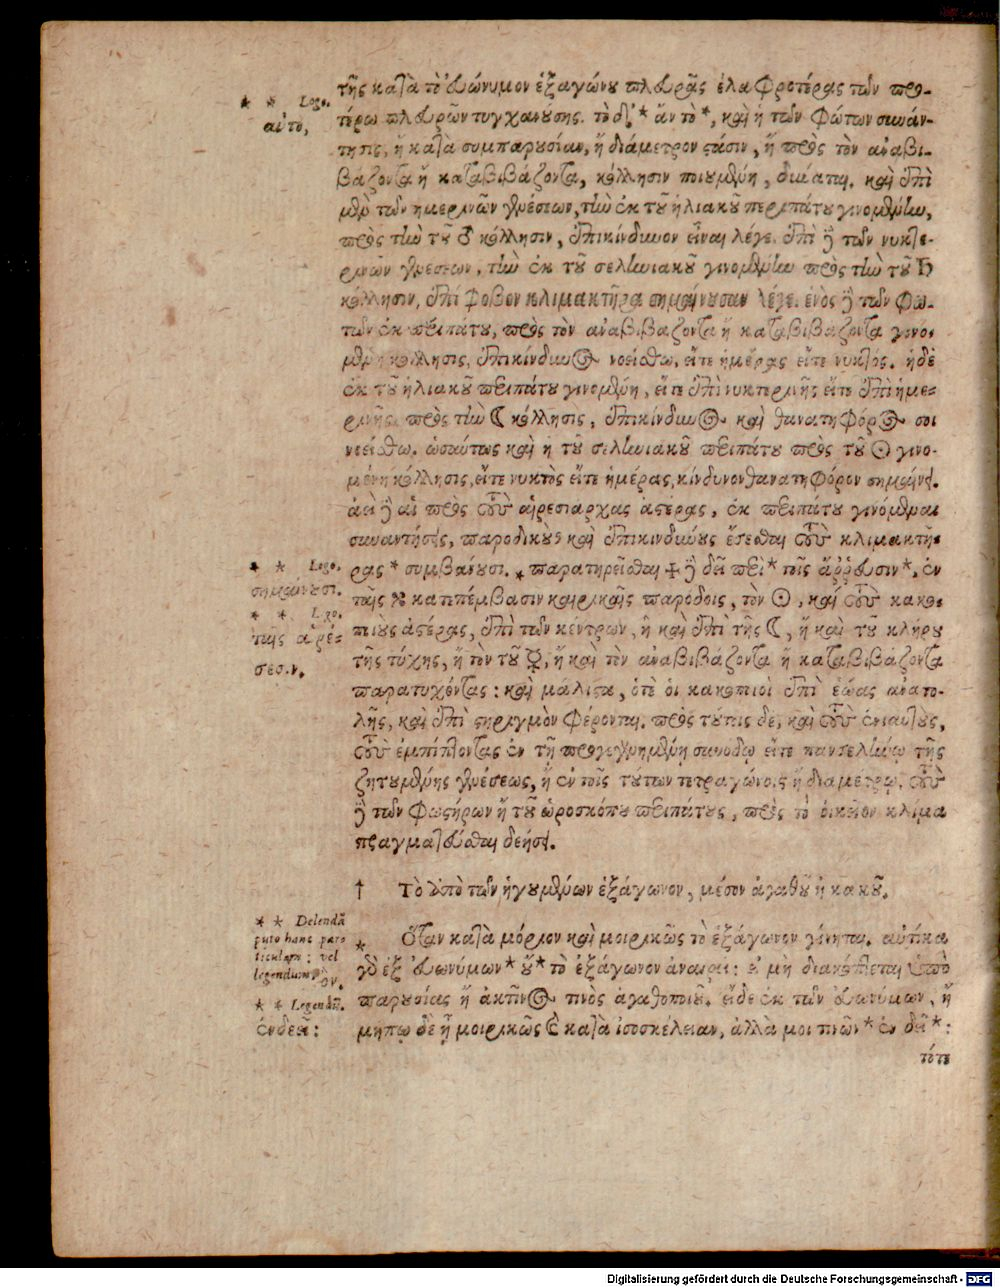 * * Lego.
αὐτὸ,
τῆς κατὰ τὸ εὐώνυμον ἑξαγώνου πλευρᾶς ἐλαφροτέρας τῶν προ-
τέρω πλευρῶν τυγχανούσης. τὸ δὲ * ἂν τὸ *, καὶ ἡ τῶν Φώτων συνάν-
τησις, ἢ κατὰ συμπαρουσίαν, ἢ διάμετρον στάσιν, ἢ πρὸς τὸν ἀναβι-
βάζοντα ἢ καταβιβάζοντα, κόλλησιν ποιουμένη, δύναται. καὶ ἐπὶ
μὲν τῶν ἡμερινῶν γενέσεων, τὴν ἐκ τοῦ ἡλιακοῦ περιπάτου γινομένην,
πρὸς τὴν τοῦ ♂ κόλλησιν, ἐπικίνδυνον εἶναι λέγε. ἐπὶ δὲ τῶν νυκτε-
ρινῶν γενέσεων, τὴν ἐκ τοῦ σεληνιακοῦ γινομένην πρὸς τὴν τοῦ ♄
κόλλησιν, ἐπὶ φόβον κλιμακτῆρα σημαίνουσαν λέγε. ἑνὸς δὲ τῶν Φώ-
των ἐκ περιπάτου, πρὸς τὸν ἀναβιβάζοντα ἢ καταβιβάζοντα γινο-
μένη κόλλησις, ἐπικίνδυνος νοείσθω, εἴτε ἡμέρας εἴτε νυκτός. ἡ δὲ
ἐκ τοῦ ἡλιακοῦ περιπάτου γινομένη, εἴτε ἐπὶ νυκτερινῆς εἴτε ἐπὶ ἡμε-
ρινῆς, πρὸς τὴν ☾ κόλλησις, ἐπικίνδυνος καὶ θανατηφόρος σοι
νοείσθω. ὡσαύτως καὶ ἡ τοῦ σεληνιακοῦ περιπάτου πρὸς τοῦ ☉ γινο-
μένη κόλλησις, εἴτε νυκτὸς εἴτε ἡμέρας, κίνδυνον θανατηφόρον σημαίνει.
ἀεὶ δὲ αἱ πρὸς τοὺς αἱρεσιάρχας ἀστέρας, ἐκ περιπάτου γινόμεναι
συναντήσεις, παροδικοὺς καὶ ἐπικινδύνους ἔσεσθαι τοὺς κλιμακτῆ-
* * Lego.
σημαίνουσι.
* * Lego.
ταῖς αἱρέ-
σεσιν.
ρας * συμβαίνουσι. * παρατηρεῖσθαι ☩ δὲ δεῖ περὶ * τοῖς ἄρρευσιν *, ἐν
ταῖς κατεπέμβασιν καιρικαῖς παρόδοις, τὸν ☉, καὶ τοὺς κακο-
ποιοὺς ἀστέρας, ἐπὶ τῶν κέντρων, ἢ καὶ ἐπὶ τῆς ☾, ἢ καὶ τοῦ κλήρου
τῆς τύχης, ἢ τὸν τοῦ ☿, ἢ καὶ τὸν ἀναβιβάζοντα ἢ καταβιβάζοντα
παρατυχόντας: καὶ μάλιστα, ὅτε οἱ κακοποιοὶ ἐπὶ ἑῴας ἀνατο-
λῆς, καὶ ἐπὶ στηριγμὸν φέρονται. πρὸς τούτοις δὲ, καὶ τοὺς ἐνιαυτοὺς,
τοὺς ἐμπίπτοντας ἐν τῇ προγεγενημένῃ συνόδῳ εἴτε πανσελήνῳ τῆς
ζητουμένης γενέσεως, ἢ ἐν τοῖς τούτων τετραγώνοις ἢ διαμέτρῳ. τοὺς
δὲ τῶν Φωστήρων ἢ τοῦ ὡροσκόπου περιπάτους, πρὸς τὸ οἰκεῖον κλίμα
πραγματεύεσθαι δεήσει.
† Τὸ ὑπὸ τῶν ἡγουμένων ἑξάγωνον, μέσον ἀγαθοῦ ἢ κακοῦ.
* * Delendā
puto hanc par-
ticulam: vel
legendum, ὄν.
* * Legendū.
ἐνδεεῖ:
* Ὅταν κατὰ μόριον καὶ μοιρικῶς τὸ ἑξάγωνον γίνηται, αὐτίκα
γὰρ ἐξ εὐωνύμων * οὔ * τὸ ἑξάγωνον ἀναιρεῖ: εἰ μὴ διακόπτεται ὑπὸ
παρουσίας ἢ ἀκτῖνος τινὸς ἀγαθοποιοῦ. εἰ δὲ ἐκ τῶν εὐωνύμων, ἢ
μήπω δὲ ᾖ μοιρικῶς ἢ κατὰ ἰσοσκέλειαν, ἀλλὰ μοι τινῶν * ἐν δεῖ *:
τότε
Digitalisierung gefördert durch die Deutsche Forschungsgemeinschaft - DFG